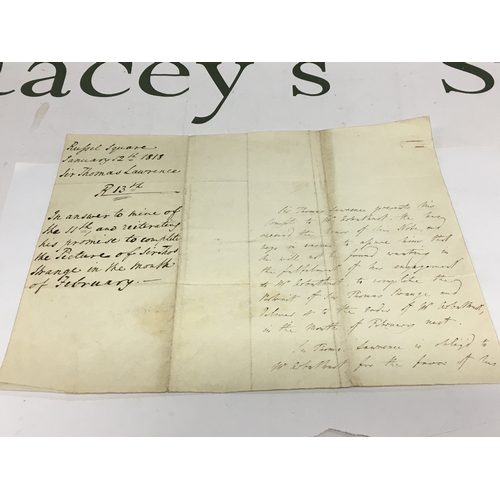 tacey's S
Russel Square
January 12th 1818
Sir Thomas Lawrence
R 13th
In answer to mine of
the 11th and reiterating
his promise to complete
the Picture of Sir Thos
Strange in the month
of February.—
Sir Thomas Lawrence presents his
the
the honor of
to assure him that
he will not be found wanting in
the fulfilment of his engagement
to Mr to complete the
Portrait of Sir Thomas Strange and
it to the order of Mr
in the month of February next.
Sir Thomas Lawrence is obliged to
Mr for the favor of his